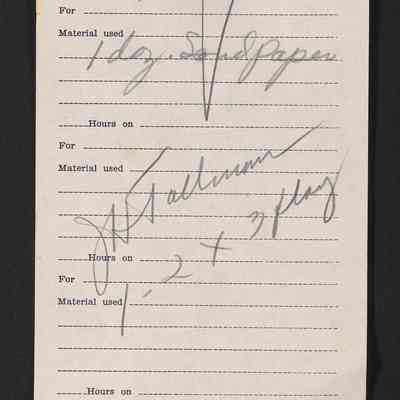 For
Material used
1 doz. Sand Paper
Hours on
For
Material used
J H Tallman
Hours on
1, 2 + 3 floor
For
Material used
Hours on